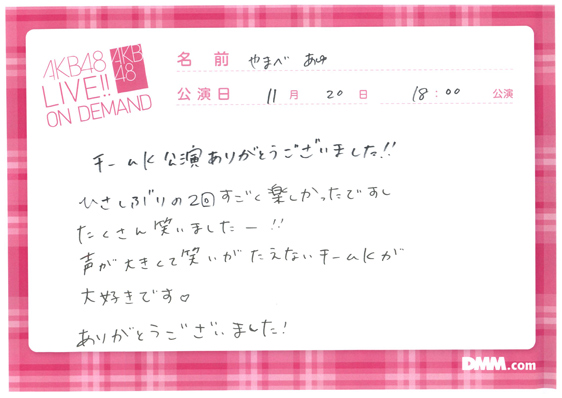 AKB48
LIVE!!
ON DEMAND
AKB
48
名前 やまべ あゆ
公演日 11月 20日 18:00 公演
チームK公演ありがとうございました!!
ひさしぶりの2回すごく楽しかったですし
たくさん笑いましたー!!
声が大きくて笑いがたえないチームKが
大好きです♡
ありがとうございました!
DMM.com